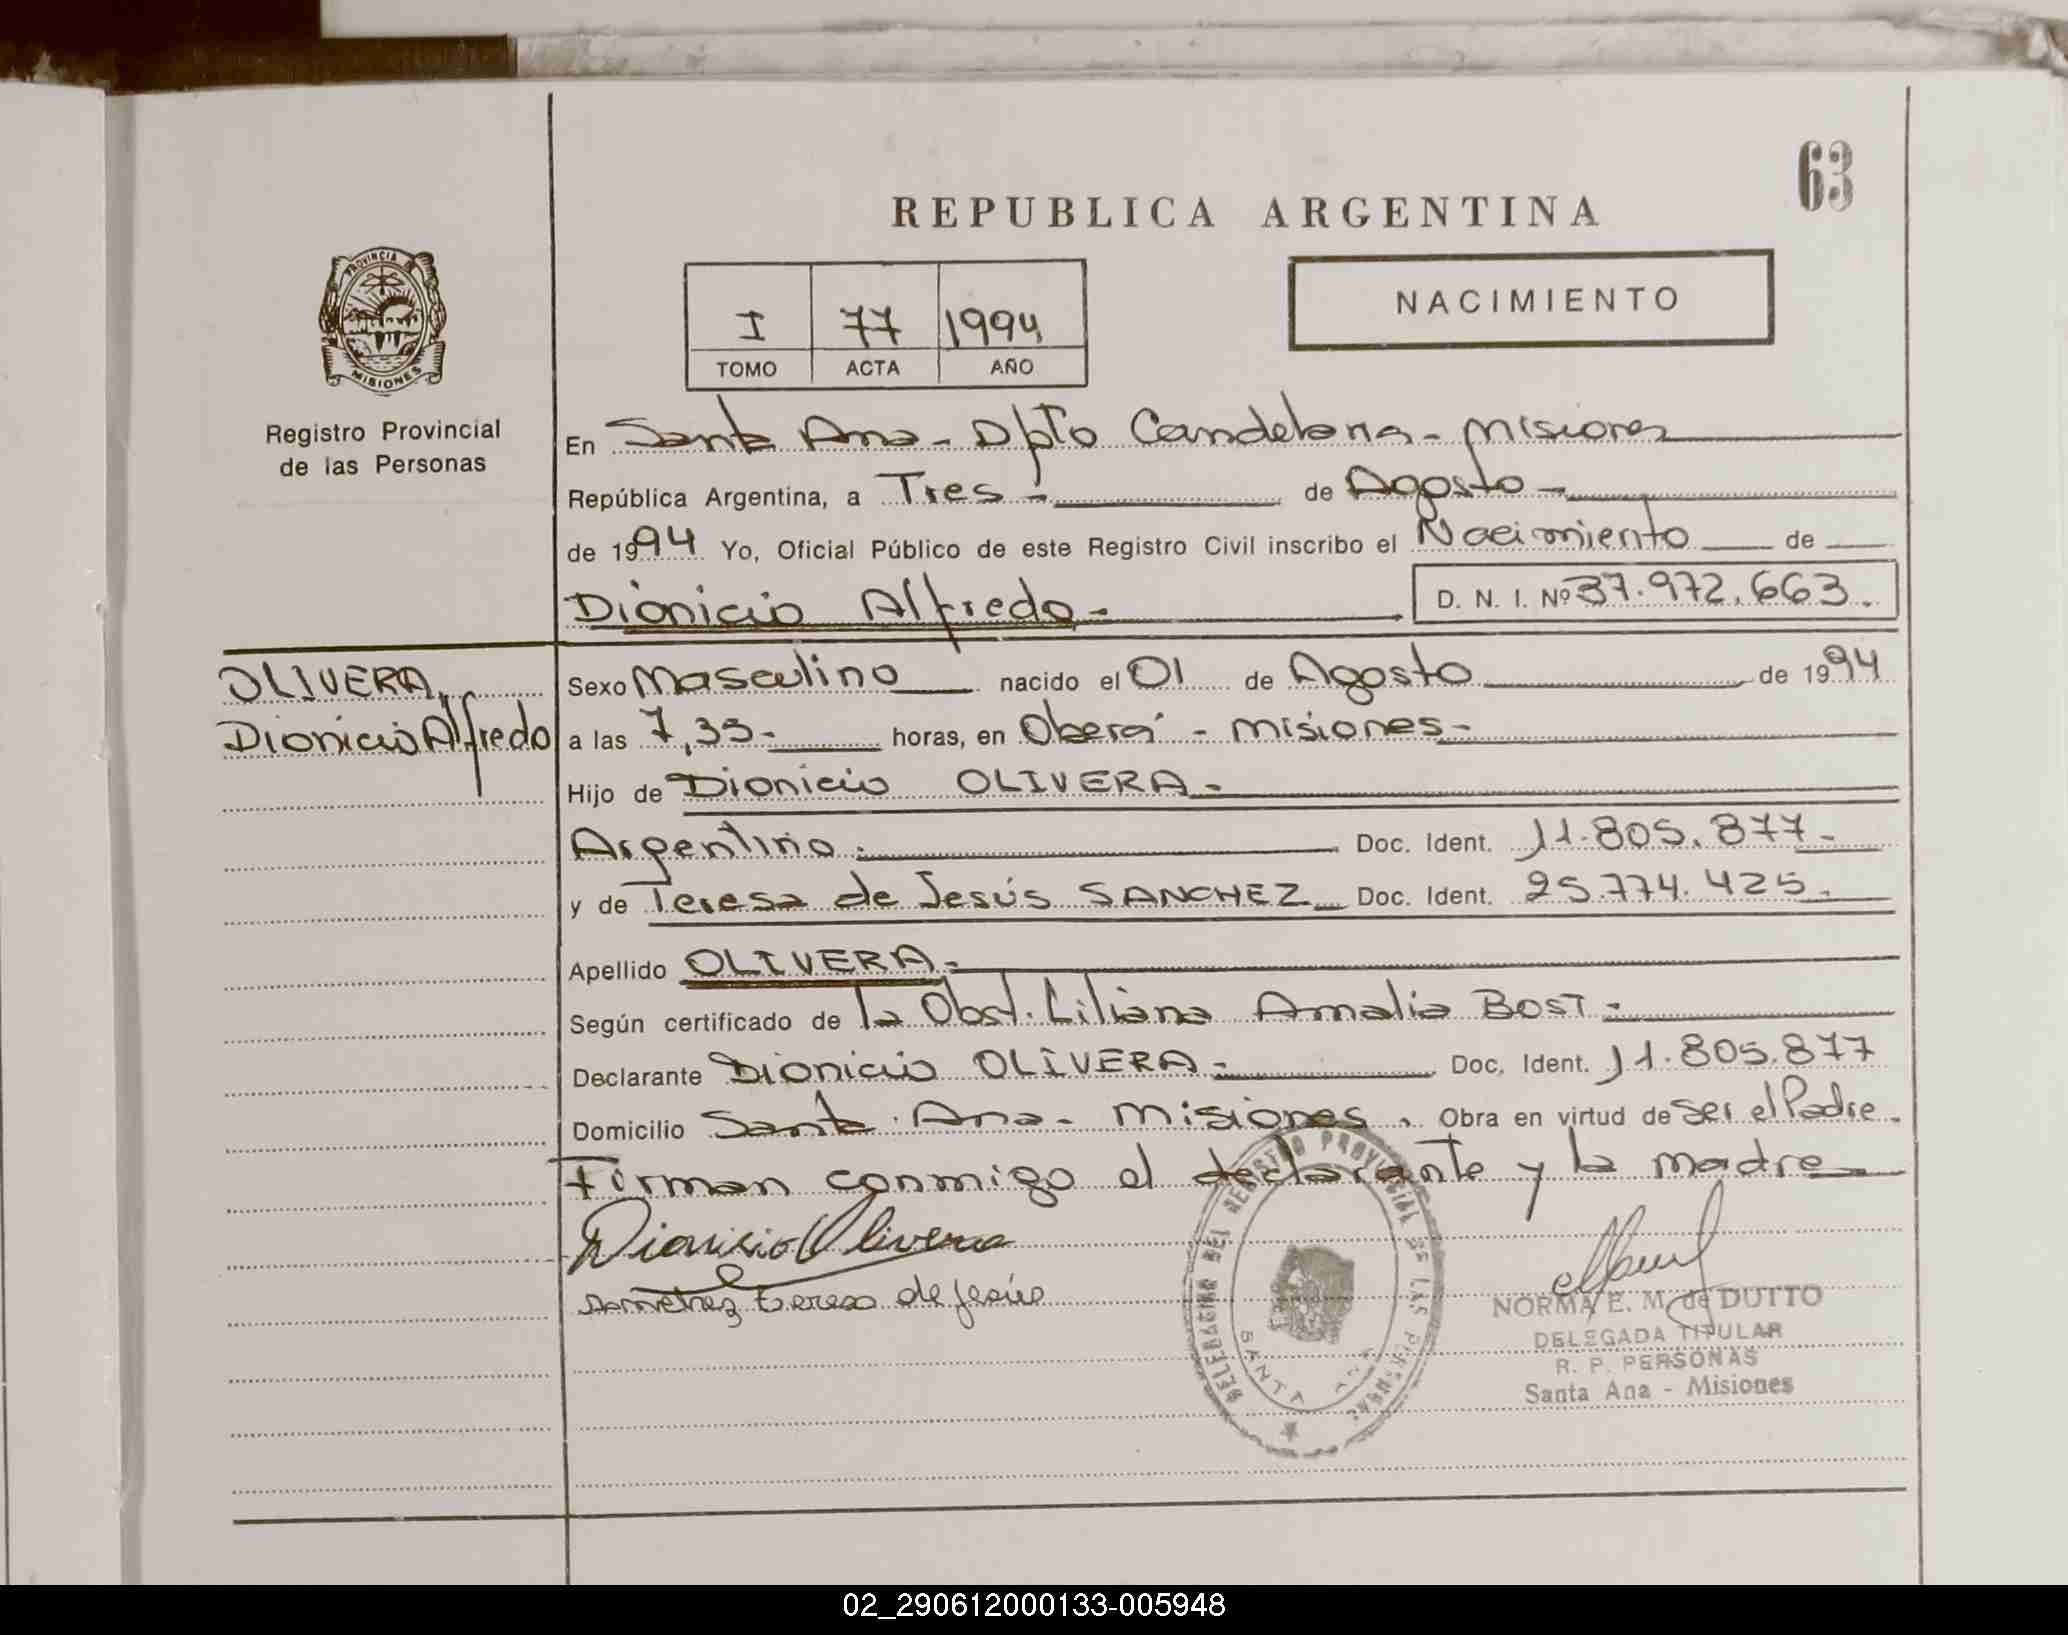 63
REPUBLICA ARGENTINA
NACIMIENTO
PROVINCIA DE MISIONES
Registro Provincial
de las Personas
I 77 1994
TOMO ACTA AÑO
En Santa Ana - Dpto Candelaria - Misiones
República Argentina, a Tres - de Agosto -
de 1994 Yo, Oficial Público de este Registro Civil inscribo el Nacimiento de
Dionicio Alfredo - D. N. I. Nº 37.972.663.
OLIVERA,
Dionicio Alfredo
Sexo Masculino nacido el 01 de Agosto de 1994
a las 7,35- horas, en Oberá - Misiones -
Hijo de Dionicio OLIVERA -
Argentino. Doc. Ident. 11.805.877-
y de Teresa de Jesús SANCHEZ Doc. Ident. 25.774.425.
Apellido OLIVERA -
Según certificado de la Obst. Liliana Amalia BOST -
Declarante Dionicio OLIVERA - Doc. Ident. 11.805.877
Domicilio Santa Ana - Misiones . Obra en virtud de ser el Padre.
Firman conmigo el declarante y la madre
Dionisio Olivera
Sanchez Teresa de Jesús
DELEGACION DEL REGISTRO PROVINCIAL DE LAS PERSONAS
SANTA ANA
NORMA E. M. de DUTTO
DELEGADA TITULAR
R. P. PERSONAS
Santa Ana - Misiones
02_290612000133-005948